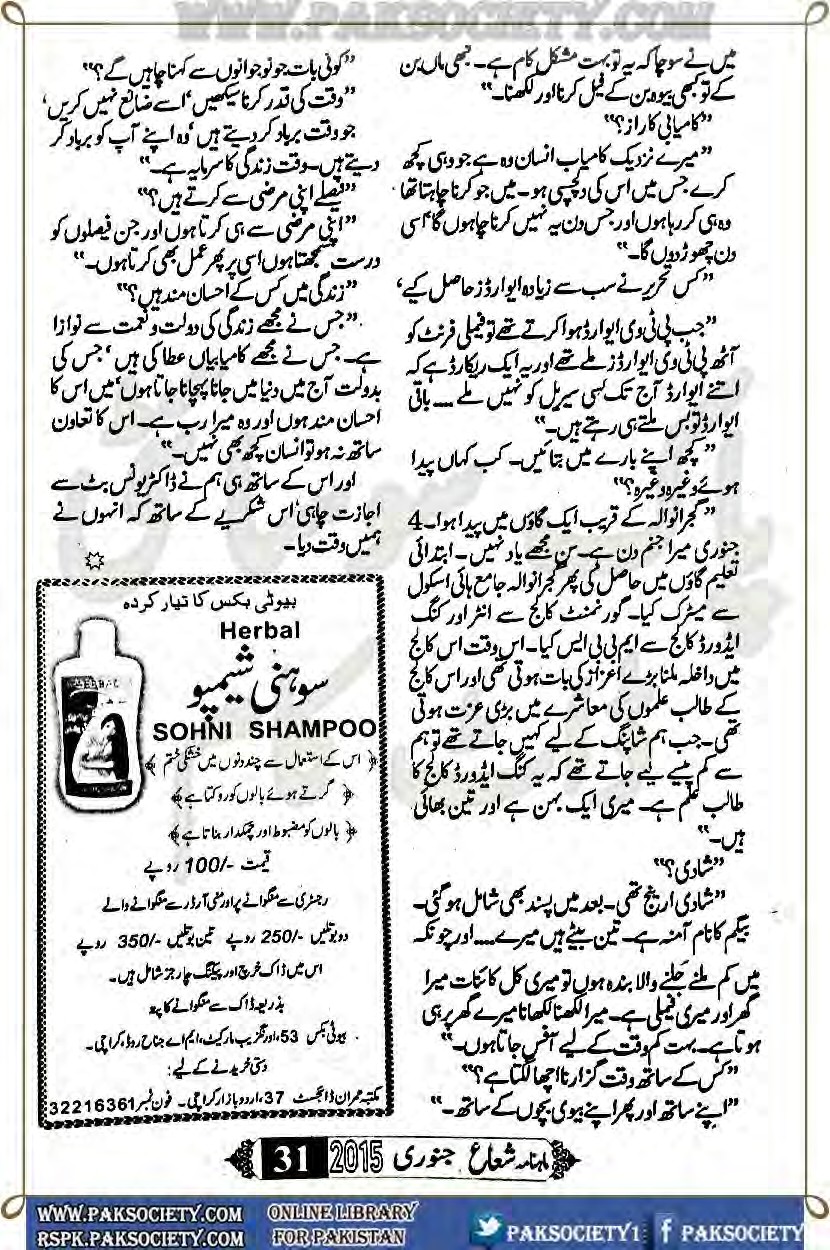 WWW.PAKSOCIETY.COM
میں نے سوچا کہ یہ تو بہت مشکل کام ہے۔ کبھی ماں بن
کے تو کبھی بیوہ بن کے فیل کرنا اور لکھنا۔"
"کامیابی کا راز؟"
"میرے نزدیک کامیاب انسان وہ ہے جو وہی کچھ
کرے جس میں اس کی دلچسپی ہو۔ میں جو کرنا چاہتا تھا
وہ ہی کر رہا ہوں اور جس دن یہ نہیں کرنا چاہوں گا اسی
دن چھوڑ دوں گا۔"
"کس تحریر نے سب سے زیادہ ایوارڈز حاصل کیے،
"جب پی ٹی وی ایوارڈ ہوا کرتے تھے تو فیملی فرنٹ کو
آٹھ پی ٹی وی ایوارڈز ملے تھے اور یہ ایک ریکارڈ ہے کہ
اتنے ایوارڈ آج تک کسی سیریل کو نہیں ملے .... باقی
ایوارڈ تو بس ملتے ہی رہتے ہیں۔"
"کچھ اپنے بارے میں بتائیں۔ کب کہاں پیدا
ہوئے وغیرہ وغیرہ؟"
"گجرانوالہ کے قریب ایک گاؤں میں پیدا ہوا۔ 4
جنوری میرا جنم دن ہے۔ سن مجھے یاد نہیں۔ ابتدائی
تعلیم گاؤں میں حاصل کی پھر گجرانوالہ جامع ہائی اسکول
سے میٹرک کیا۔ گورنمنٹ کالج سے انٹر اور کنگ
ایڈورڈ کالج سے ایم بی بی ایس کیا۔ اس وقت اس کالج
میں داخلہ ملنا بڑے اعزاز کی بات ہوتی تھی اور اس کالج
کے طالب علموں کی معاشرے میں بڑی عزت ہوتی
تھی۔ جب ہم شاپنگ کے لیے کہیں جاتے تھے تو ہم
سے کم پیسے لیے جاتے تھے کہ یہ کنگ ایڈورڈ کالج کا
طالب علم ہے۔ میری ایک بہن ہے اور تین بھائی
ہیں۔"
"شادی؟"
"شادی ارینج تھی۔ بعد میں پسند بھی شامل ہو گئی۔
بیگم کا نام آمنہ ہے۔ تین بیٹے ہیں میرے .... اور چونکہ
میں کم ملنے جلنے والا بندہ ہوں تو میری کل کائنات میرا
گھر اور میری فیملی ہے۔ میرا لکھنا لکھانا میرے گھر پر ہی
ہوتا ہے۔ بہت کم وقت کے لیے آفس جاتا ہوں۔"
"کس کے ساتھ وقت گزارنا اچھا لگتا ہے؟"
"اپنے ساتھ اور پھر اپنے بیوی بچوں کے ساتھ۔"
"کوئی بات جو نوجوانوں سے کہنا چاہیں گے؟"
"وقت کی قدر کرنا سیکھیں، اسے ضائع نہیں کریں،
جو وقت برباد کر دیتے ہیں، وہ اپنے آپ کو برباد کر
دیتے ہیں۔ وقت زندگی کا سرمایہ ہے۔"
"فیصلے اپنی مرضی سے کرتے ہیں؟"
"اپنی مرضی سے ہی کرتا ہوں اور جن فیصلوں کو
درست سمجھتا ہوں اسی پر پھر عمل بھی کرتا ہوں۔"
"زندگی میں کس کے احسان مند ہیں؟"
"جس نے مجھے زندگی کی دولت و نعمت سے نوازا
ہے۔ جس نے مجھے کامیابیاں عطا کی ہیں، جس کی
بدولت آج میں دنیا میں جانا پہچانا جاتا ہوں، میں اس کا
احسان مند ہوں اور وہ میرا رب ہے۔ اس کا تعاون
ساتھ نہ ہو تو انسان کچھ بھی نہیں۔"
اور اس کے ساتھ ہی ہم نے ڈاکٹر یونس بٹ سے
اجازت چاہی، اس شکریے کے ساتھ کہ انہوں نے
ہمیں وقت دیا۔
بیوٹی بکس کا تیار کردہ
Herbal
سوہنی شیمپو
SOHNI SHAMPOO
اس کے استعمال سے چند دنوں میں خشکی ختم
گرتے ہوئے بالوں کو روکتا ہے
بالوں کو مضبوط اور چمکدار بناتا ہے
قیمت -/100 روپے
رجسٹری سے منگوانے پر اور منی آرڈر سے منگوانے والے
دو بوتلیں -/250 روپے تین بوتلیں -/350 روپے
اس میں ڈاک خرچ اور پیکنگ چارجز شامل ہیں۔
بذریعہ ڈاک سے منگوانے کا پتہ
بیوٹی بکس 53، اورنگزیب مارکیٹ، ایم اے جناح روڈ، کراچی۔
دستی خریدنے کے لیے:
مکتبہ عمران ڈائجسٹ 37، اردو بازار کراچی۔ فون نمبر 32216361
ماہنامہ شعاع جنوری 2015 31
WWW.PAKSOCIETY.COM
RSPK.PAKSOCIETY.COM
ONLINE LIBRARY
FOR PAKISTAN
PAKSOCIETY1
PAKSOCIETY